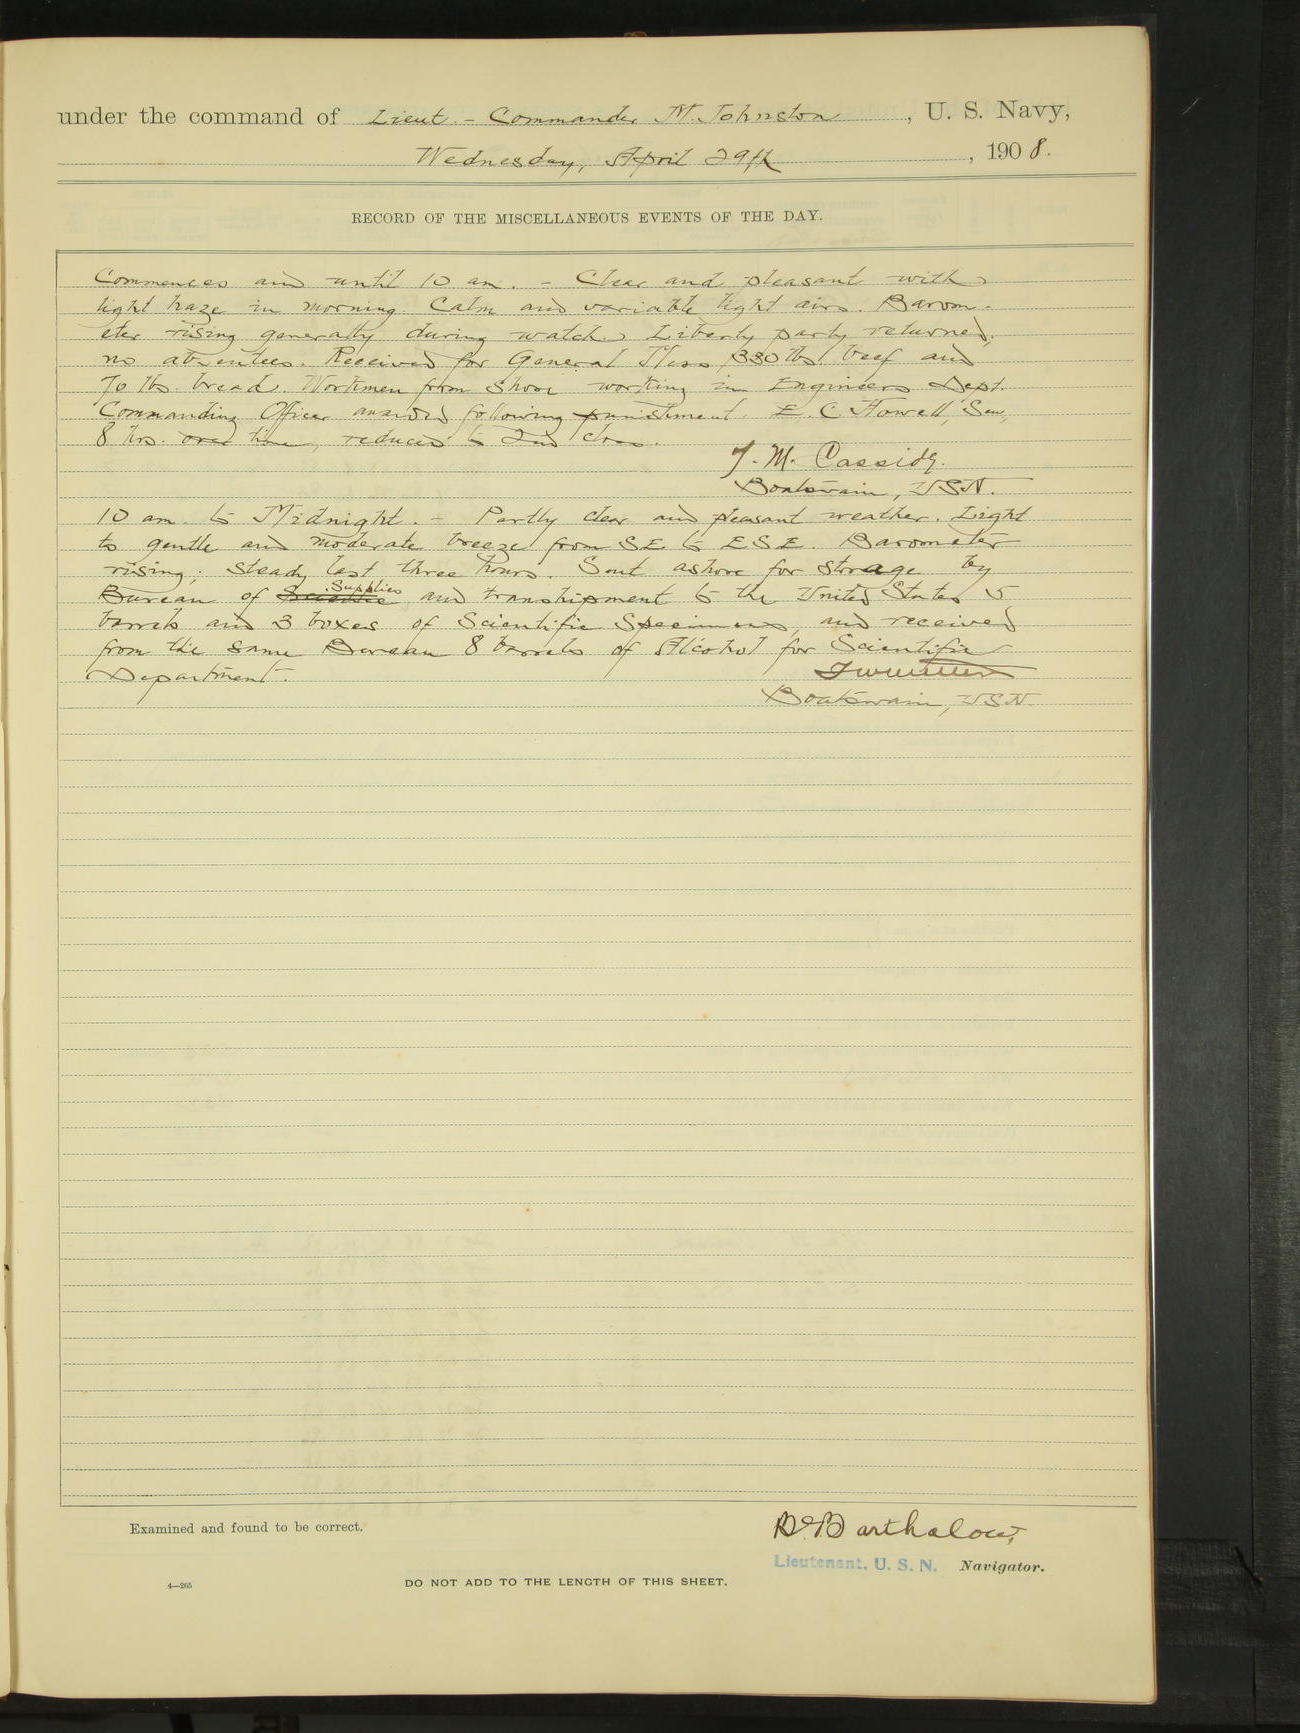 under the command of Lieut.- Commander M. Johnston, U. S. Navy,
Wednesday, April 29th, 1908.
RECORD OF THE MISCELLANEOUS EVENTS OF THE DAY.
Commences and until 10 am. - Clear and pleasant with
light haze in morning. Calm and variable light airs. Barom-
eter rising generally during watch. Liberty party returned,
no absentees. Received for General Mess, 330 lbs. beef and
70 lbs. bread. Workmen from shore working in Engineers Dept.
Commanding Officer awarded following punishment. E. C. Howell, Sea,
8 hrs. over time, reduced to 2nd class.
T. M. Cassidy.
Boatswain, USN.
10 am. to Midnight. - Partly clear and pleasant weather. Light
to gentle and moderate breeze from SE to ESE. Barometer
rising; steady last three hours. Sent ashore for storage by
Supplies
Bureau of and transhipment to the United States 5
barrels and 3 boxes of Scientific Specimens, and received
from the same Bureau 8 barrels of Alcohol for Scientific
Department.
Boatswain, USN.
Examined and found to be correct.
Barthalow,
Lieutenant, U. S. N. Navigator.
4—265
DO NOT ADD TO THE LENGTH OF THIS SHEET.